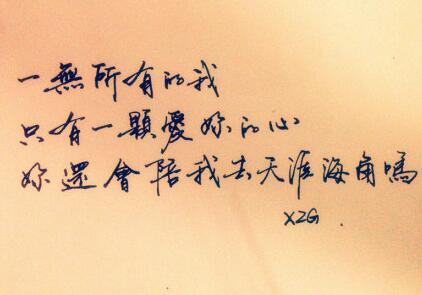 一無所有的我
只有一顆愛妳的心
妳還會陪我去天涯海角嗎
XZG